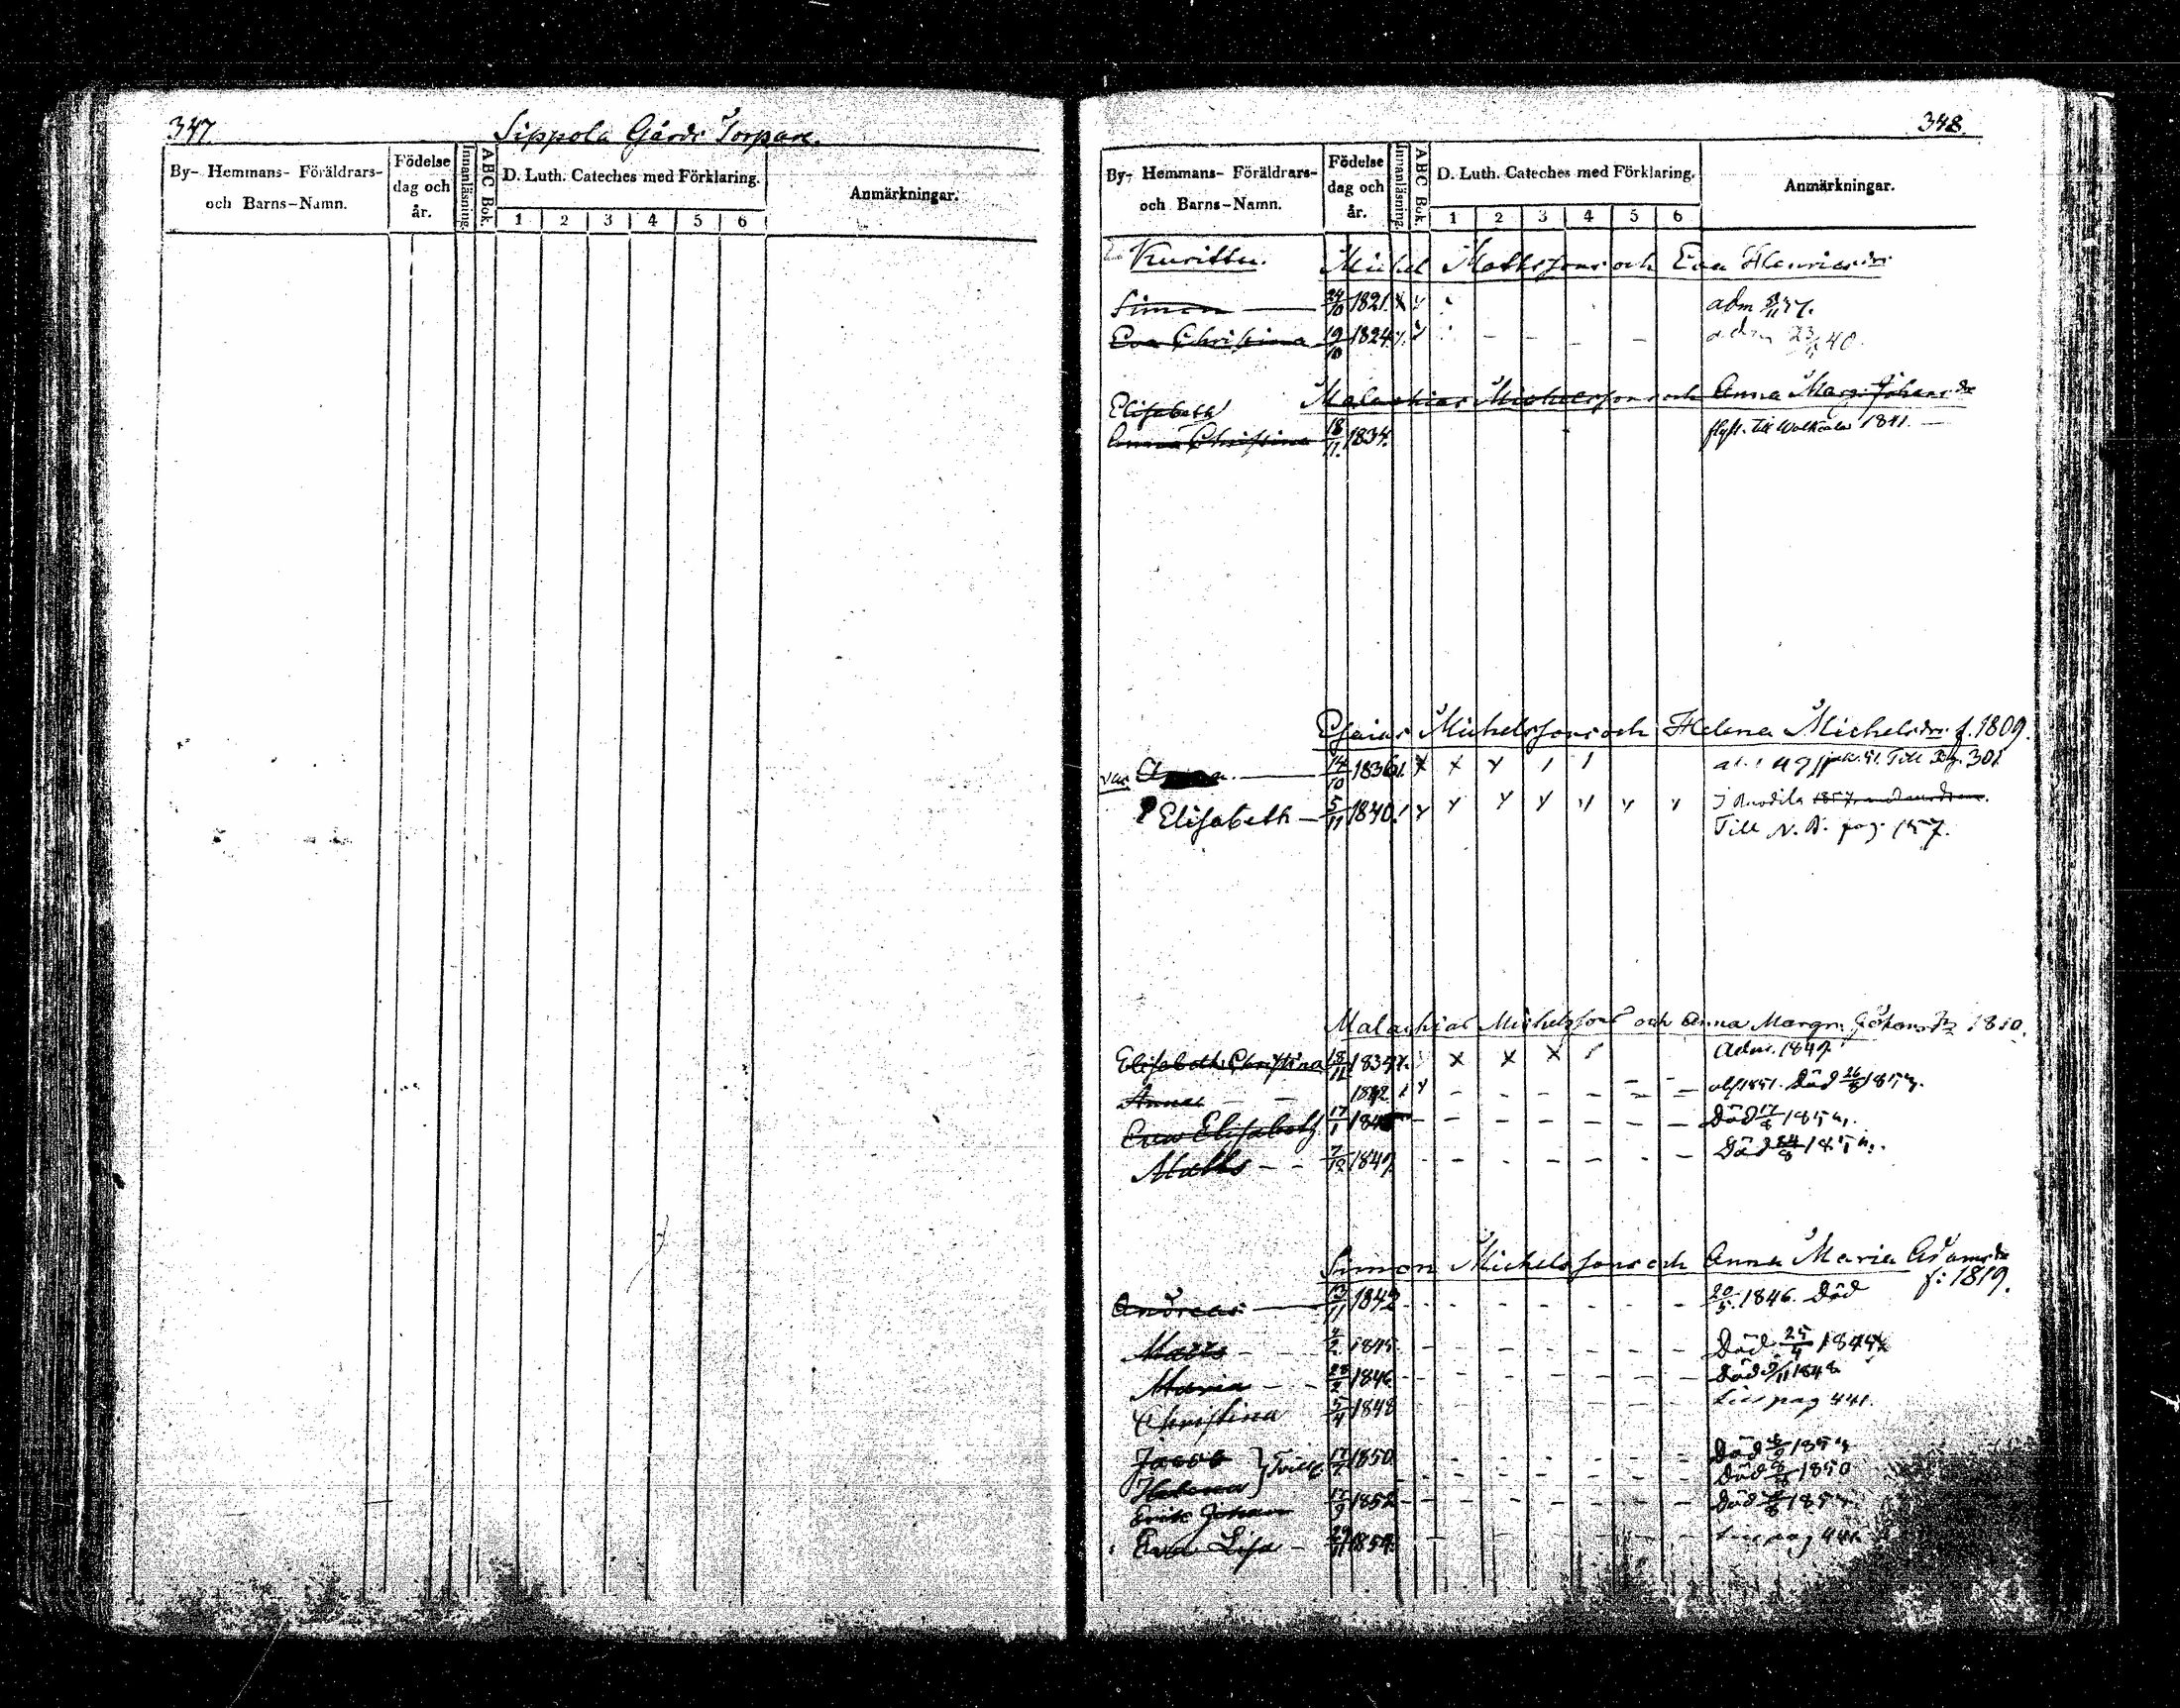 347.
Sippola Gårds Torpare.
By- Hemmans- Föräldrars-
och Barns-Namn.
Födelse
dag och
år.
Innanläsning.
ABC Bok.
D. Luth. Cateches med Förklaring.
1 2 3 4 5 6
Anmärkningar.
348.
By- Hemmans- Föräldrars-
och Barns-Namn.
Födelse
dag och
år.
Innanläsning.
ABC Bok.
D. Luth. Cateches med Förklaring.
1 2 3 4 5 6
Anmärkningar.
Kurittu. Michel Mathssons och Eva Henricsdr
Simon 24/10 1821. adm
Eva Christina 19/10 1824. adm 40.
Malachias Michelssons och Anna Marg. Johansdr
Elisabeth
Anna Christina 18/11. 1834. flytt. till Walkiala 1841.
Esaias Michelssons och Helena Michelsdr f. 1809.
14/10 1836 Till Pag. 301
Elisabeth 5/11 1840.
Till N. B. pag. 157.
Malachias Michelssons och Anna Margr. Johansdr 1810.
Elisabeth Christina 18/11 1834. Adm. 1849.
Anna 1842 Död 26/8
Eva Elisabeth 17/1 Död
Maths 7/12 1847. Död 24/8
Simon Michelssons och Anna Maria Adamsdr
f: 1819.
Andreas 13/11 1842 20/5. 1846. Död
Maths 4/2 1845. Död 25/4
Maria 28/2 1846 Död 9/11 1848
Christina 5/4 1848 till pag 441.
Jacob } Tvill. 17/7 1850 Död
Helena Död 1850
Erik Johan 17/9 1852 Död
Eva Lisa 29/11 1854. till pag 441.